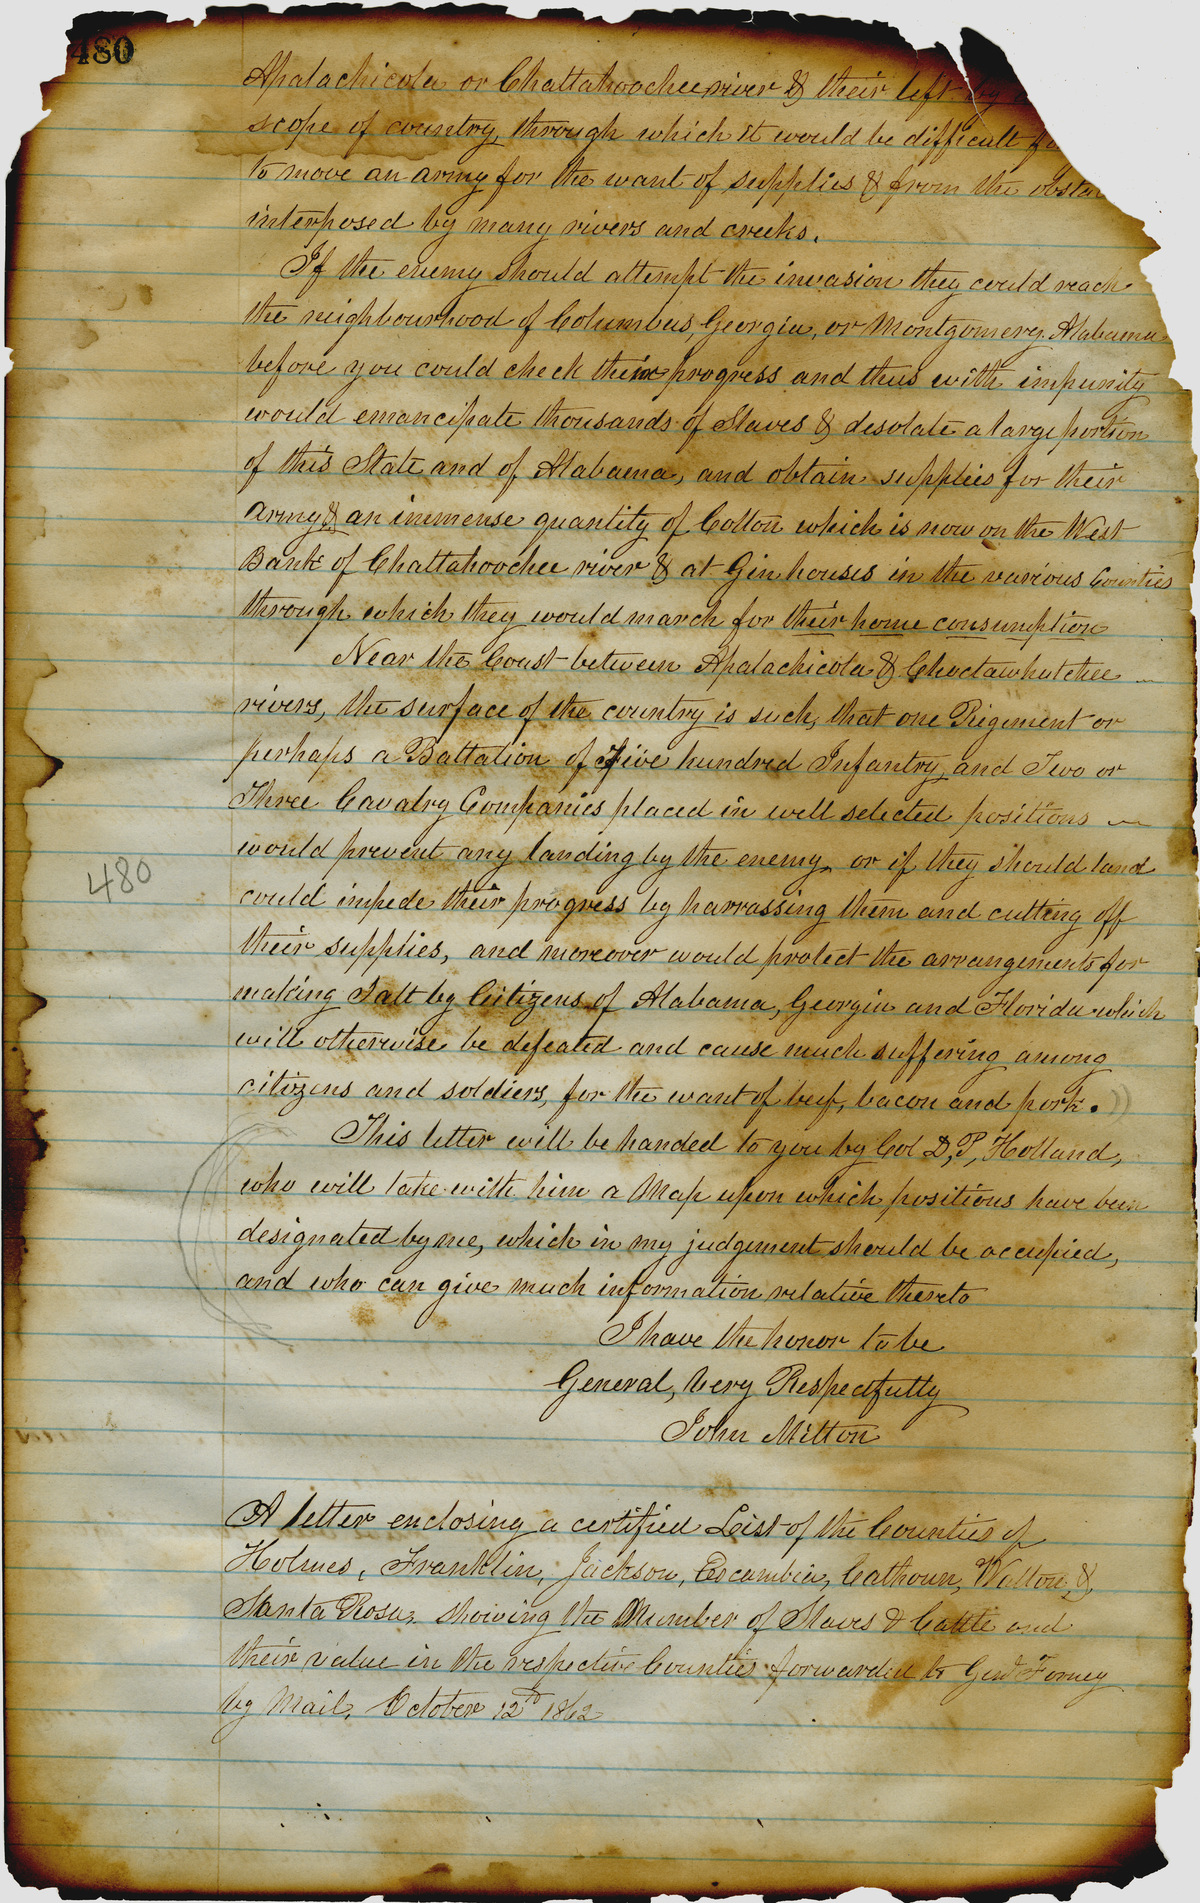 480
Apalachicola or Chattahoochee river & their left by
scope of country, through which it would be difficult
to move an army for the want of supplies & from the
interposed by many rivers and creeks.
If the enemy should attempt the invasion they could reach
the neighbourhood of Columbus, Georgia, or Montgomery Alabama
before you could check their progress and thus with impunity
would emancipate thousands of Slaves & desolate a large portion
of this State and of Alabama, and obtain supplies for their
army & an immense quantity of Cotton which is now on the West
Bank of Chattahoochee river & at Gin houses in the various Counties
through which they would march for their home consumption
Near the Coast between Apalachicola & Choctawhatchee
rivers, the surface of the country is such, that one Regiment or
perhaps a Battalion of Five hundred Infantry, and Two or
Three Cavalry Companies placed in well selected positions
would prevent any landing by the enemy, or if they should land
480
could impede their progress by harrassing them and cutting off
their supplies, and moreover would protect the arrangements for
making Salt by Citizens of Alabama, Georgia and Florida which
will otherwise be defeated and cause much suffering among
citizens and soldiers, for the want of beef, bacon and pork.
This letter will be handed to you by Col D, P, Holland,
who will take with him a Map upon which positions have been
designated by me, which in my judgement should be occupied,
and who can give much information relative thereto
I have the honor to be
General, Very Respectfully
John Milton
A letter enclosing a certified List of the Counties of
Holmes, Franklin, Jackson, Escambia, Calhoun, Walton, &
Santa Rosa, showing the Number of Slaves & Cattle and
their value in the respective Counties forwarded to Genl Forney
by Mail, October 12th 1862